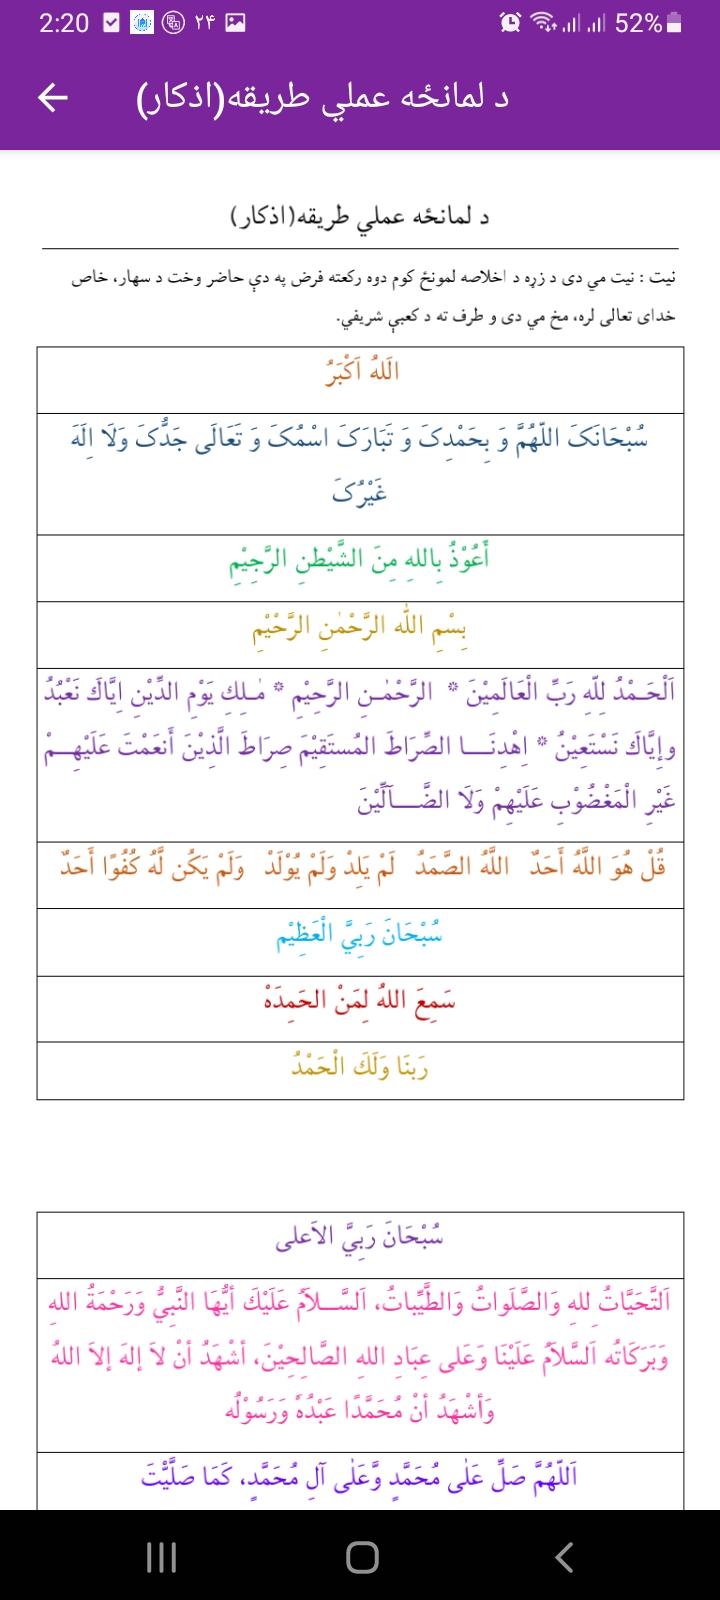 2:20
۲۴
52%
د لمانځه عملي طریقه(اذکار)
د لمانځه عملي طریقه(اذکار)
نیت : نیت مي دی د زړه د اخلاصه لمونځ کوم دوه رکعته فرض په دې حاضر وخت د سهار، خاص
خدای تعالی لره، مخ مي دی و طرف ته د کعبې شریفي.
الَلهُ اَكْبَرُ
سُبْحَانَکَ اللّهُمَّ وَ بِحَمْدِکَ وَ تَبَارَکَ اسْمُکَ وَ تَعَالَی جَدُّکَ وَلَا اِلَهَ
غَيْرُکَ
أَعُوْذُ بِاللهِ مِنَ الشَّيْطنِ الرَّجِيْمِ
بِسْمِ الله الرَّحْمٰنِ الرَّحْيْمِ
اَلْحَـمْدُ لِلّهِ رَبِّ الْعَالَمِيْنَ * الرَّحْمٰـنِ الرَّحِيْمِ * مٰـلِكِ يَوْمِ الدِّيْنِ اِيَّاكَ نَعْبُدُ
وإيَّاكَ نَسْتَعِيْنُ * اِهْدِنَــــا الصِّرَاطَ المُستَقِيْمَ صِرَاطَ الَّذِيْنَ أَنعَمْتَ عَلَيْهِـــمْ
غَيْرِ الْمَغْضُوْبِ عَلَيْهِمْ وَلَا الضَّـــآلِّيْنَ
قُلْ هُوَ اللَّهُ أَحَدٌ اللَّهُ الصَّمَدُ لَمْ يَلِدْ وَلَمْ يُوْلَدْ وَلَمْ يَكُن لَّهُ كُفُوًا أَحَدٌ
سُبْحَانَ رَبِيَّ الْعَظِيْم
سَمِعَ اللهُ لِمَنْ الحَمِدَهْ
رَبنَا وَلَكَ الْحَمْدُ
سُبْحَانَ رَبِيَّ الاَعلی
اَلتَّحَيَّاتُ للهِ وَالصَّلَواتُ وَالطَّيِّباتُ، اَلسَّـــلاَمُ عَلَيْكَ أيُّهَا النَّبِيُّ وَرَحْمَةُ اللهِ
وَبَرَكَاتُه اَلسَّلاَمُ عَلَيْنَا وَعَلى عِبَادِ اللهِ الصَّالِحِيْنَ، أشْهَدُ أنْ لاَ إلهَ إلاَ اللهُ
وَأشْهَدُ أنْ مُحَمَّدًا عَبْدُهُ وَرَسُوْلُه
اَللّهُمَّ صَلِّ عَلٰى مُحَمَّدٍ وَّعَلٰى آلِ مُحَمَّدٍ، كَمَا صَلَّيْتَ